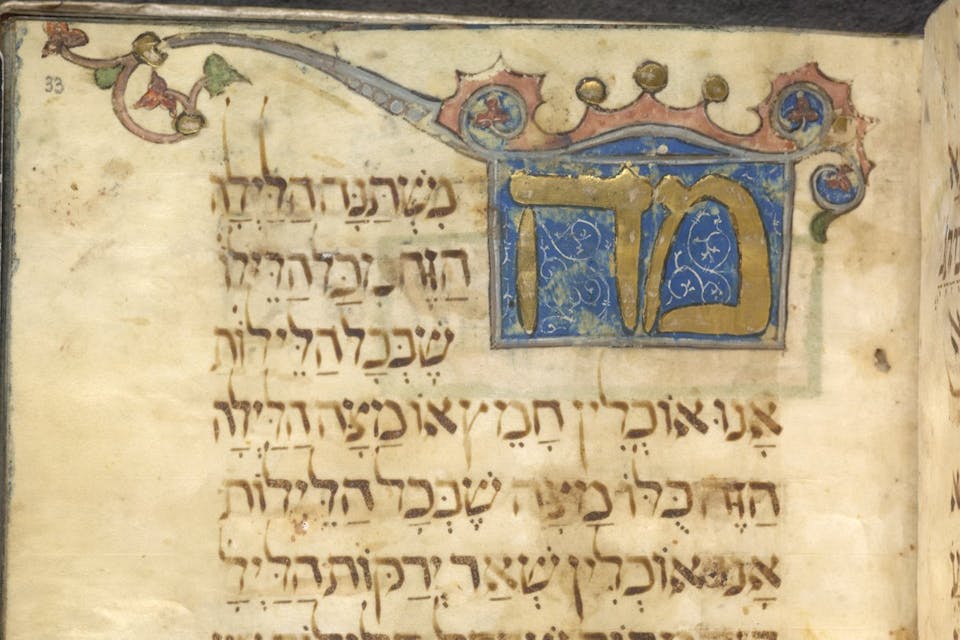 33
מה
מִשְׁתַּנָּה הַלַּיְלָה
הַזֶּה מִכָּל הַלֵּילוֹ
שֶׁבְּכָל הַלֵּילוֹת
אָנוּ אוֹכְלִין חָמֵץ אוֹ מַצָּה הַלַּיְלָה
הַזֶּה כֻּלּוֹ מַצָּה שֶׁבְּכָל הַלֵּילוֹת
אָנוּ אוֹכְלִין שְׁאַר יְרָקוֹת הַלַּיְלָ